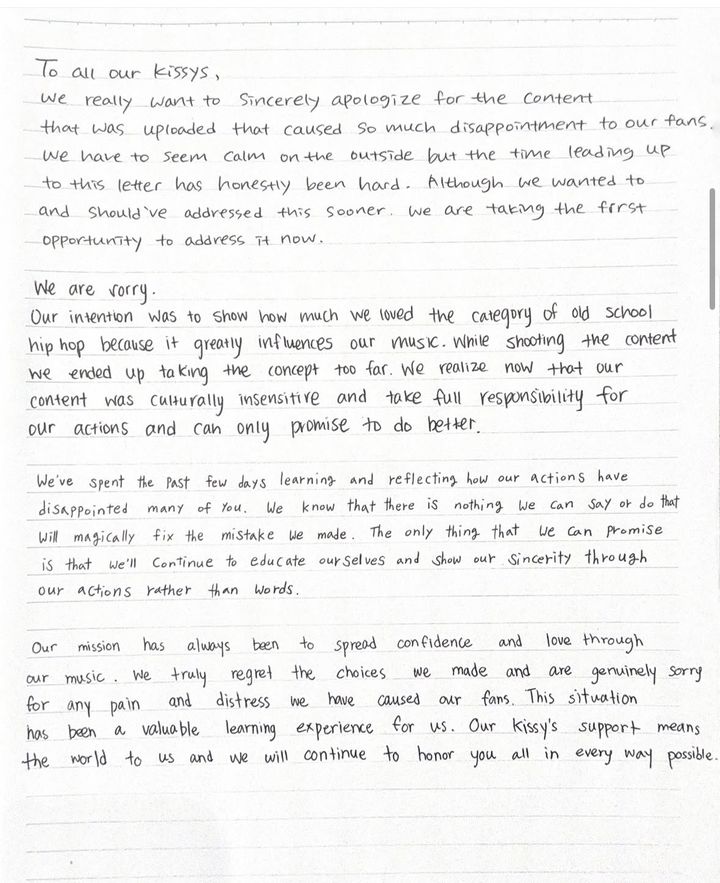 To all our kissys,
we really want to sincerely apologize for the content
that was uploaded that caused so much disappointment to our fans.
we have to seem calm on the outside but the time leading up
to this letter has honestly been hard. Although we wanted to
and should've addressed this sooner. we are taking the first
opportunity to address it now.
We are sorry.
Our intention was to show how much we loved the category of old school
hip hop because it greatly influences our music. While shooting the content
we ended up taking the concept too far. We realize now that our
content was culturally insensitive and take full responsibility for
our actions and can only promise to do better.
We've spent the past few days learning and reflecting how our actions have
disappointed many of you. We know that there is nothing we can say or do that
will magically fix the mistake we made. The only thing that we can promise
is that we'll continue to educate ourselves and show our sincerity through
our actions rather than words.
Our mission has always been to spread confidence and love through
our music. We truly regret the choices we made and are genuinely sorry
for any pain and distress we have caused our fans. This situation
has been a valuable learning experience for us. Our kissy's support means
the world to us and we will continue to honor you all in every way possible.